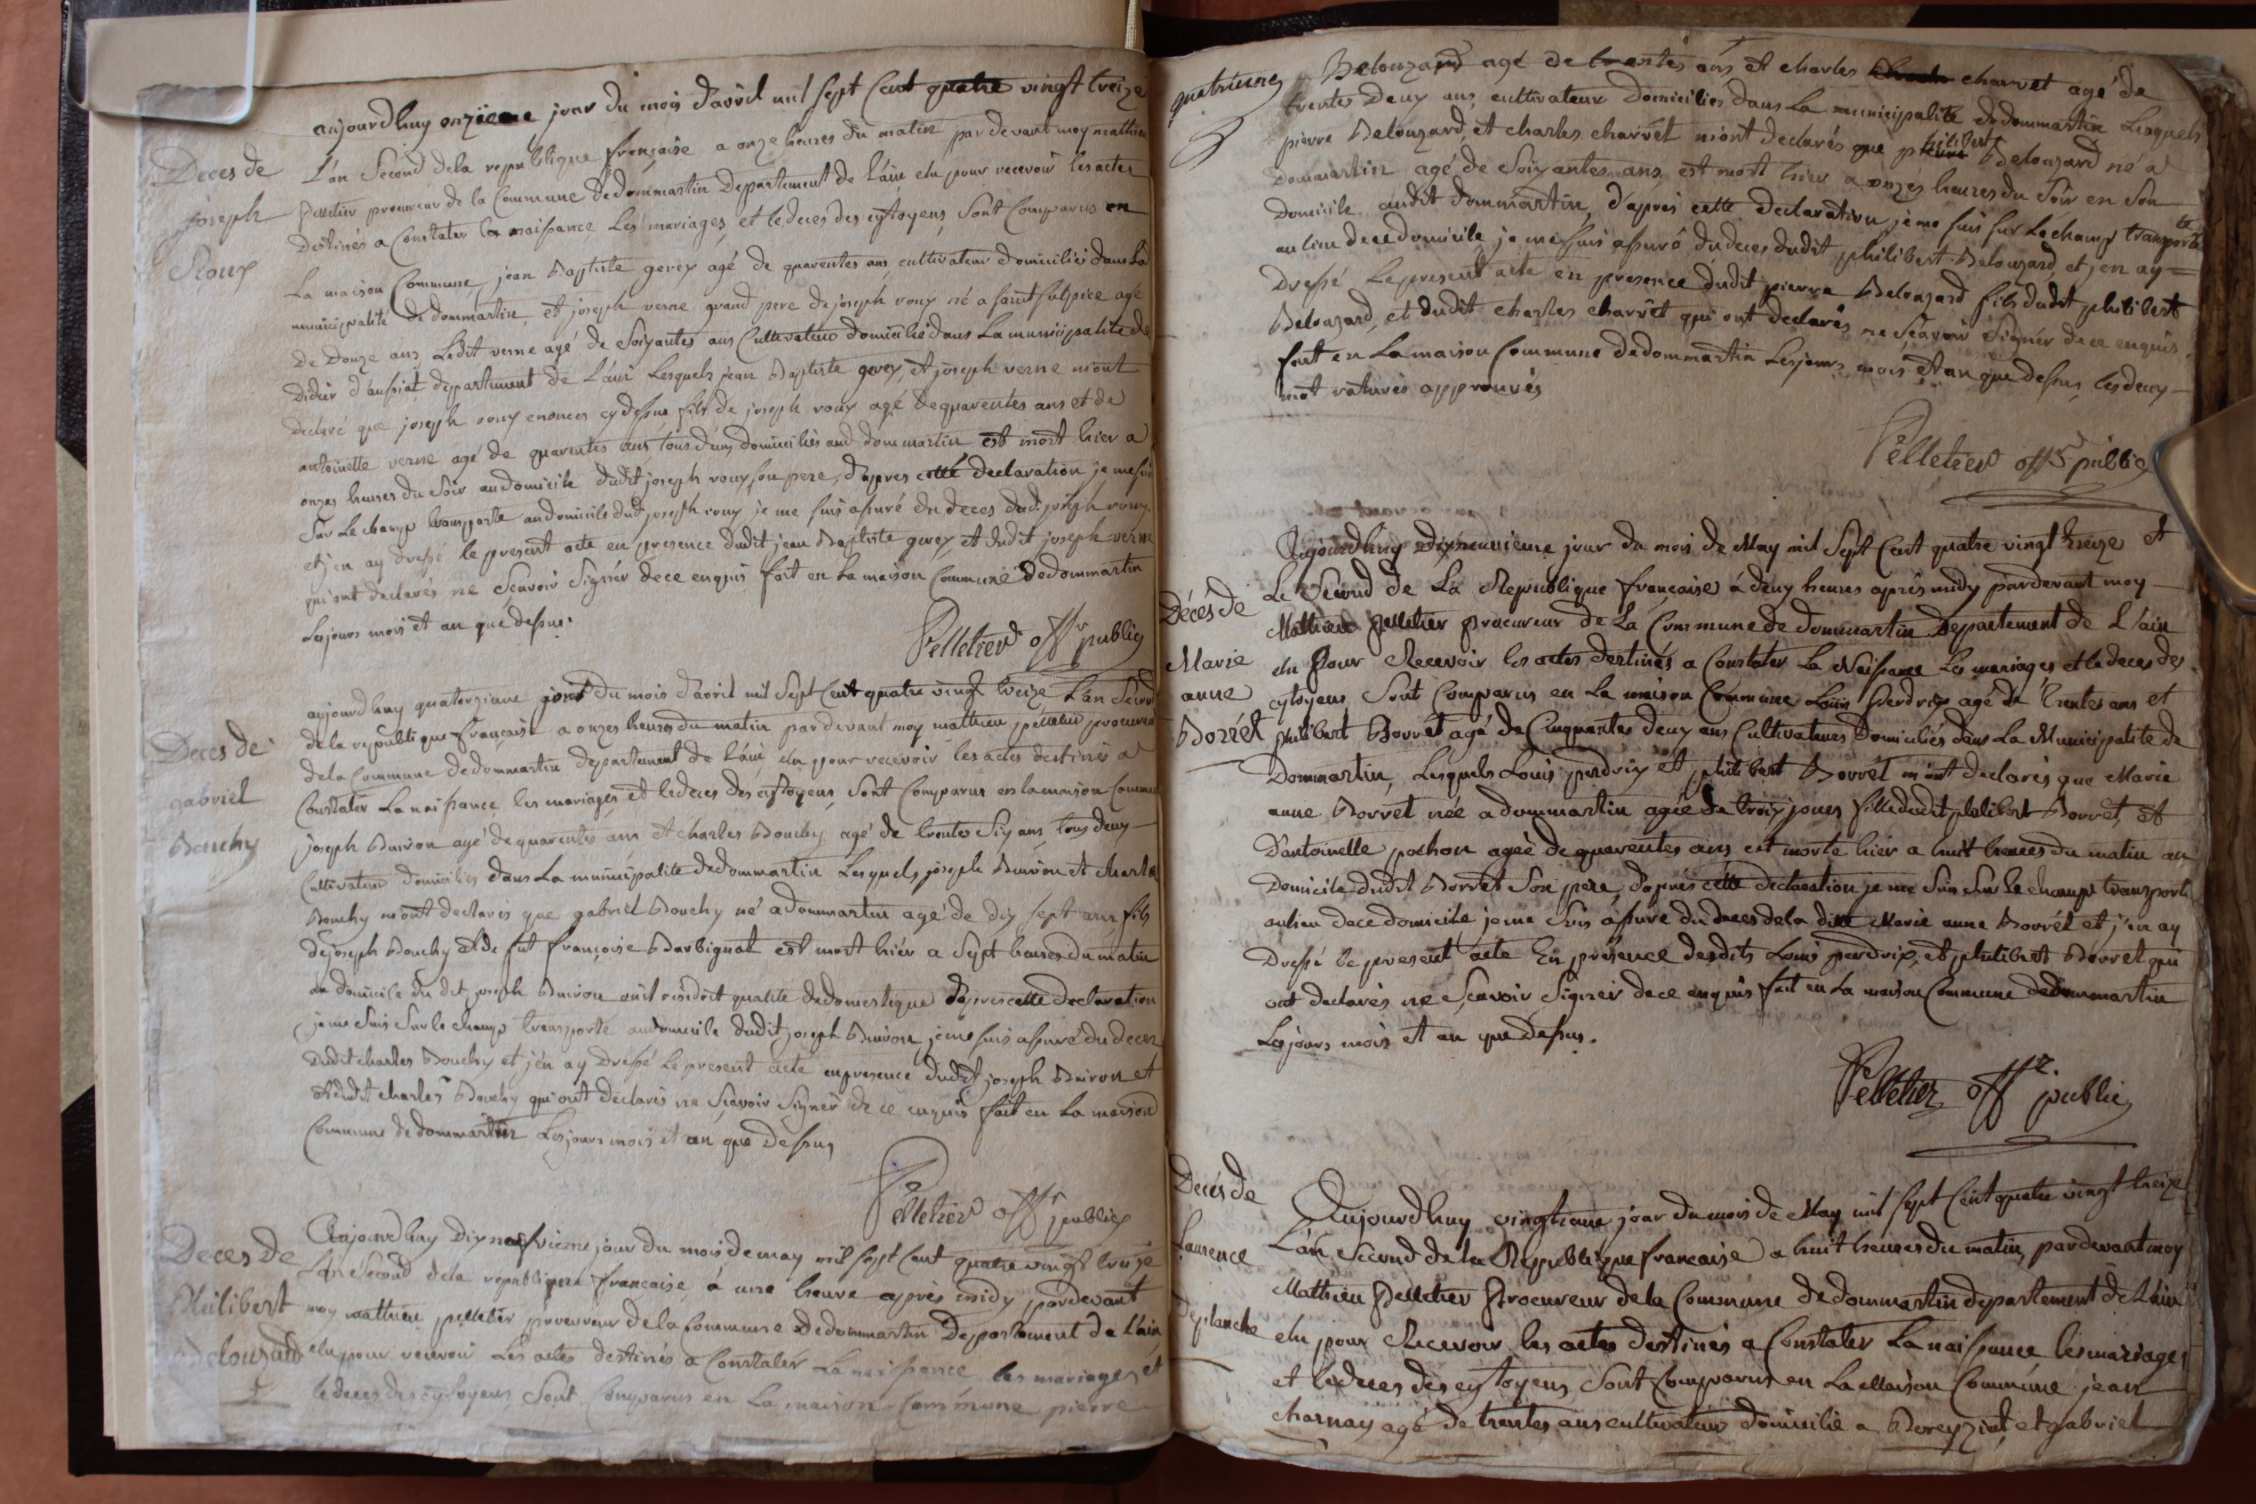 aujourdhuy onzieme jour du mois davril mil sept Cent quatre vingt treize
Deces de
joseph
Roux
L'an Second dela republique française a onze heures du matin par devant moy mathieu
pelletier procureur de la Commune dedommartin Departement de l'ain elu pour recevoir les actes
destinés a Constater la naissance Les mariages et le deces des cytoyens Sont Comparus en
La maison Commune jean Baptiste gerex agé de quarentes ans cultivateur domicilié dans la
municipalité de dommartin, et joseph verne grand pere de joseph roux né a saint sulpice agé
de Douze ans Ledit verne agé de Soixantes ans Cultivateur domicilié dans La municipalité de
Didier d'aussiat departement de L'ain Lesquels jean Baptiste gerex, et joseph verne m'ont
declaré que joseph roux enoncés cy dessus fils de joseph roux agé de quarentes ans et de
antoinette verne agé de quarentes ans tous deux domiciliés aud dommartin est mort hier a
onzes heures du Soir au domicile dudit joseph roux son pere, d'apres cette declaration je me suis
Sur Le champ transporte au domicile dud joseph roux je me suis assuré du deces dud. joseph roux
et j'en ay dressé le present acte en presence dudit jean Baptiste gerex, et dudit joseph verne
qui ont declarés ne Scavoir Signér de ce enquis fait en la maison Commune dedommartin
Lesjours mois et an que dessus.
Pelletier offr public
Deces de
gabriel
Bouchy
aujourdhuy quatorzieme jour du mois d'avril mil Sept Cent quatre vingt treize L'an Second
de la republique française a onzes heures du matin par devant moy mathieu pelletier procureur
dela Commune dedommartin departement de L'ain elu pour recevoir les actes destinés a
Constater La naissance les mariages et le deces des cytoyens Sont Comparus en lamaison Commune
joseph Buiron agé de quarentes ans et charles Bouchy agé de trentes Six ans, tous deux
Cultivateur domiciliés dans La municipalité dedommartin Lesquels joseph Buiron et charles
Bouchy m'ont declarés que gabriel Bouchy né adommartin agé de dix sept ans fils
de joseph Bouchy et de fut françoise Barbignat est mort hiér a Sept heures du matin
au domicile du dit joseph Buiron ou il residoit qualité de domestique D'apres cette declaration
jeme Suis Sur le champ transporte audomicile dudit joseph Buiron, jeme suis assuré du deces
dudit charles Bouchy et j'en ay Dressé Le present acte en presence dudit joseph Buiron et
dudit charles Bouchy qui ont declarés ne Scavoir Signér de ce enquis fait en La maison
Commune de dommartin Lesjours mois et an que dessus
Pelletier offr public
Deces de
Philibert
Belouzard
Aujourdhuy Dix neufvieme jour du mois de may mil sept Cent quatre vingt treize
L'an Second de la republique française à une heure après midy pardevant
moy mathieu pelletier procureur de la Commune dedommartin Departement de L'ain
elu pour recevoir Les actes destinés a Constatér La naissance les mariages et
le deces des cytoyens Sont Comparus en La maison Commune pierre
quatrieme
Belouzard agé de trentes ans et charles charvet agé de
trentes Deux ans, cultivateur Domicilies dans La municipalité dedommartin Lesquels
pierre Belouzard, et charles charvét m'ont declarés que philibert Belouzard né a
Dommartin agé de Soixantes ans, est mort hier a onzes heures du Soir en Son
Domicile audit dommartin, d'apres cette declaration je me suis sur Le champ transporté
au lieu de ce domicile, je me suis assuré du deces dudit philibert Belouzard, et j'en ay
Dressé Le present acte en presence dudit pierre Belouzard fils dudit philibert
Belouzard, et dudit charles charvét qui ont declarés ne Scavoir Signér de ce enquis
fait en La maison Commune de dommartin Les jours, mois et an que dessus, les deux
mot raturés approuvés
Pelletier offr public
Décés de
Marie
anne
Borrét
Aujourdhuy dixneuvieme jour du mois de May mil Sept Cent quatre vingt treize et
Le Second de La Republique française à deux heures aprês midy pardevant moy
Mathieu pelletier procureur de La Commune de dommartin Departement de L'ain
elu pour Recevoir les actes destinés a Constater La Naissance Les mariages et le deces des
cytoyens Sont Comparus en La maison Commune Louis perdrix agé de trentes ans et
philibert Borrét agé de Cinquantes deux ans Cultivateurs Domiciliés dans La Municipalité de
Dommartin, Lesquels Louis perdrix et philibert Borrét m'ont declarés que Marie
anne Borrét née a dommartin agée de trois jours fille dudit philibert Borrét, et
D'antoinette pochon agée de quarentes ans est morte hier a huit heures du matin au
Domicile dudit Borrét Son pere, d'aprés cétte declaration je me Suis Sur le champ transporté
au lieu de ce domicile je me Suis assuré du deces de la ditte Marie anne Borrét et j'en ay
Dressé le present acte En presence desdits Louis perdrix, et philibert Borrét qui
ont declarés ne Scavoir Signér de ce enquis fait en La maison Commune dedommartin
Les jours mois et an que dessus.
Pelletier offr public
Decés de
Laurence
Deplanche
Aujourdhuy vingtieme jour du mois de May mil sept Cent quatre vingt treize
L'an Second de la Republique française a huit heures du matin, pardevant moy
Mathieu Pelletier Procureur de la Commune de dommartin departement de L'ain
elu pour Recevoir les actes destinés a Constater La naissance les mariages
et le deces des cytoyens Sont Comparus en La Maison Commune jean
charnay agé de trentes ans cultivateur domicilié a Bereyziat, et gabriel